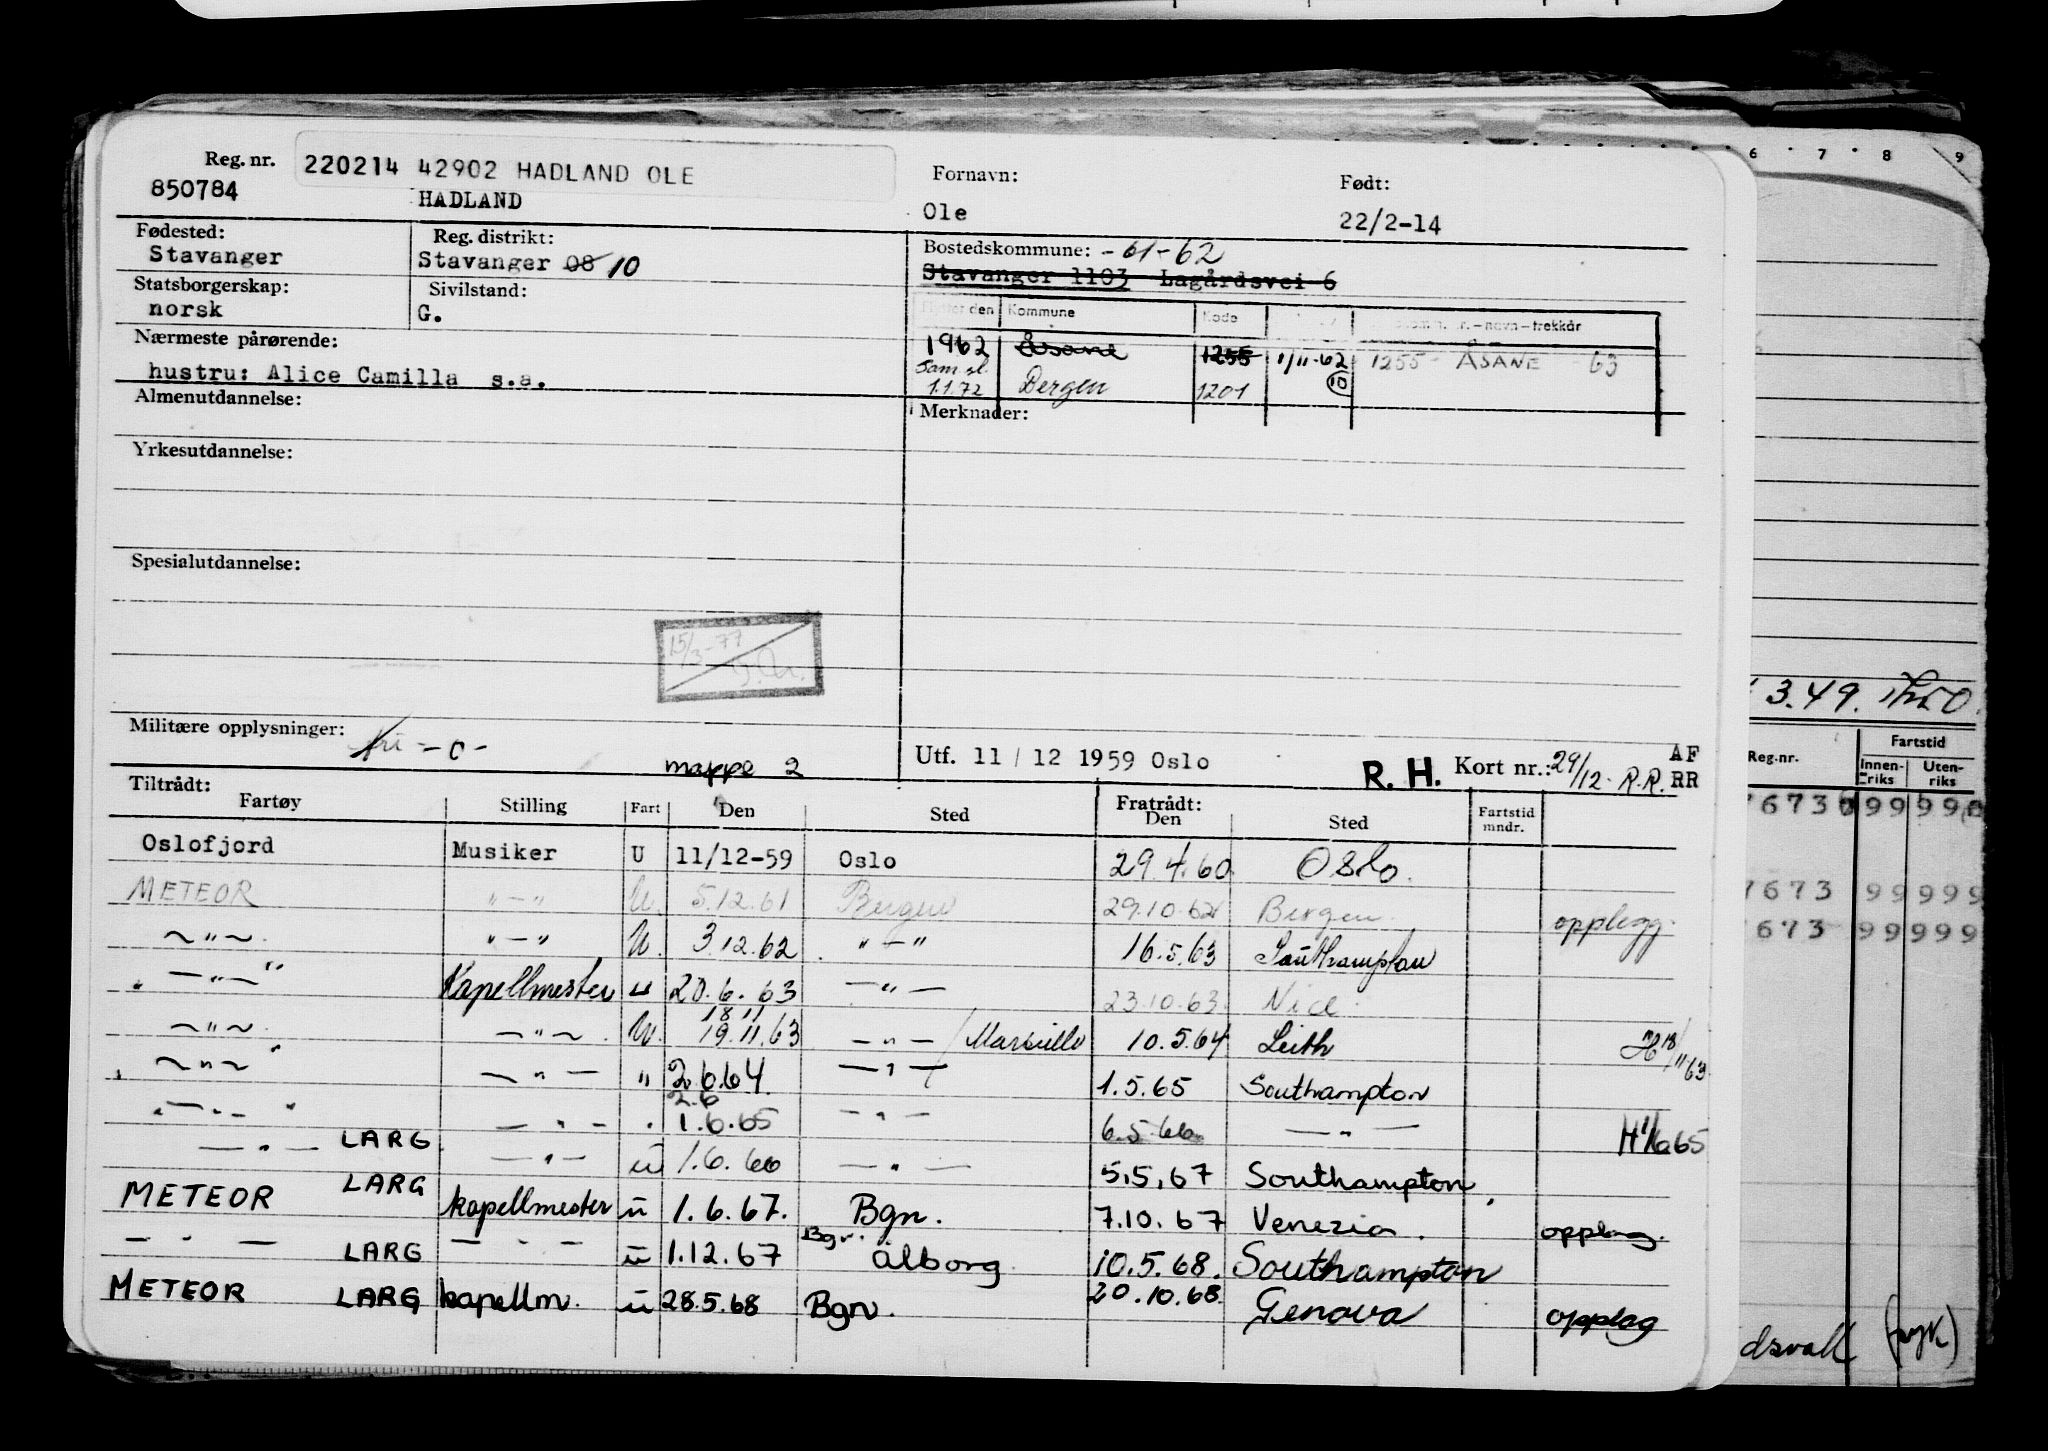 6 7 8 9
Reg. nr. 220214 42902 HADLAND OLE Fornavn: Født:
850784 HADLAND Ole 22/2-14
Fødested: Reg. distrikt: Bostedskommune: -61-62
Stavanger Stavanger 08 10 Stavanger 1103 Lagårdsvei 6
Statsborgerskap: Sivilstand:
norsk G.
Flyttet den Kommune Kode nr. - navn - trekkår
Nærmeste pårørende: 1962 Åsane 1255 1/11-62 1255 - ÅSANE - 63
hustru: Alice Camilla s.a. Sam.sl. 1.1.72 Bergen 1201 10
Almenutdannelse: Merknader:
Yrkesutdannelse:
Spesialutdannelse:
15/3-77
3.49.
Militære opplysninger: fri -c- Utf. 11 / 12 1959 Oslo R. H. Kort nr.: 29/12- R.R. AF RR
mappe 2
Reg.nr. Fartstid Innen-riks Uten-riks
Tiltrådt: Fratrådt:
Fartøy Stilling Fart Den Sted Den Sted Fartstid mndr.
Oslofjord Musiker U 11/12-59 Oslo 29.4.60 Oslo.
METEOR " - " U. 5.12.61 Bergen 29.10.62 Bergen. opplegg.
~ " ~ " - " U. 3.12.62 " - " 16.5.63 Southampton
- " - " Kapellmester u 20.6.63 - " - 23.10.63. Nice.
~ " ~ - " ~ U. 18 11 19.11.63 - " - / Marseille 10.5.64 Leith H 18/11 63
~ " ~ " - " - " 2.6.64 - " - 1.5.65 Southampton
- " - " - " - " 2.6 1.6.65 - " - 6.5.66 - " - H 1/6 65
- " - LARG. - " - ü 1.6.66 - " - 5.5.67 Southampton
METEOR LARG kapellmester ü 1.6.67. Bgn. 7.10.67 Venezia. opplag.
- " - LARG - " - ü 1.12.67 Bgn. Ålborg 10.5.68. Southampton
METEOR LARG kapellm. ü 28.5.68 Bgn. 20.10.68. Genova opplag
7673 99 999
7673 99 999